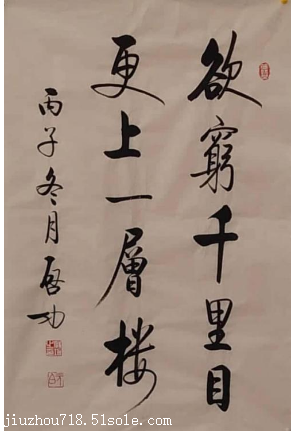 欲窮千里目
更上一層楼
丙子冬月啓功
jiuzhou718.51sole.com